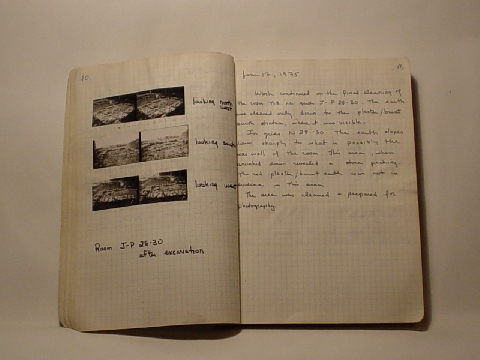 20.
looking north
west
looking south
looking west
Room J-P 25-30
after excavation
June 17, 1975
Work continued on the final cleaning of
the room in grids J-P 25-30. The earth
was cleared only down to the plaster/burnt
earth stratum, where it was visible.
In grids N 29-30 the earth slopes
down sharply to what is possibly the
wall of the room. This area, when
excavated down revealed a stone packing.
The red plaster/burnt earth was not in
evidence in this area.
The area was cleaned & prepared for
photography.